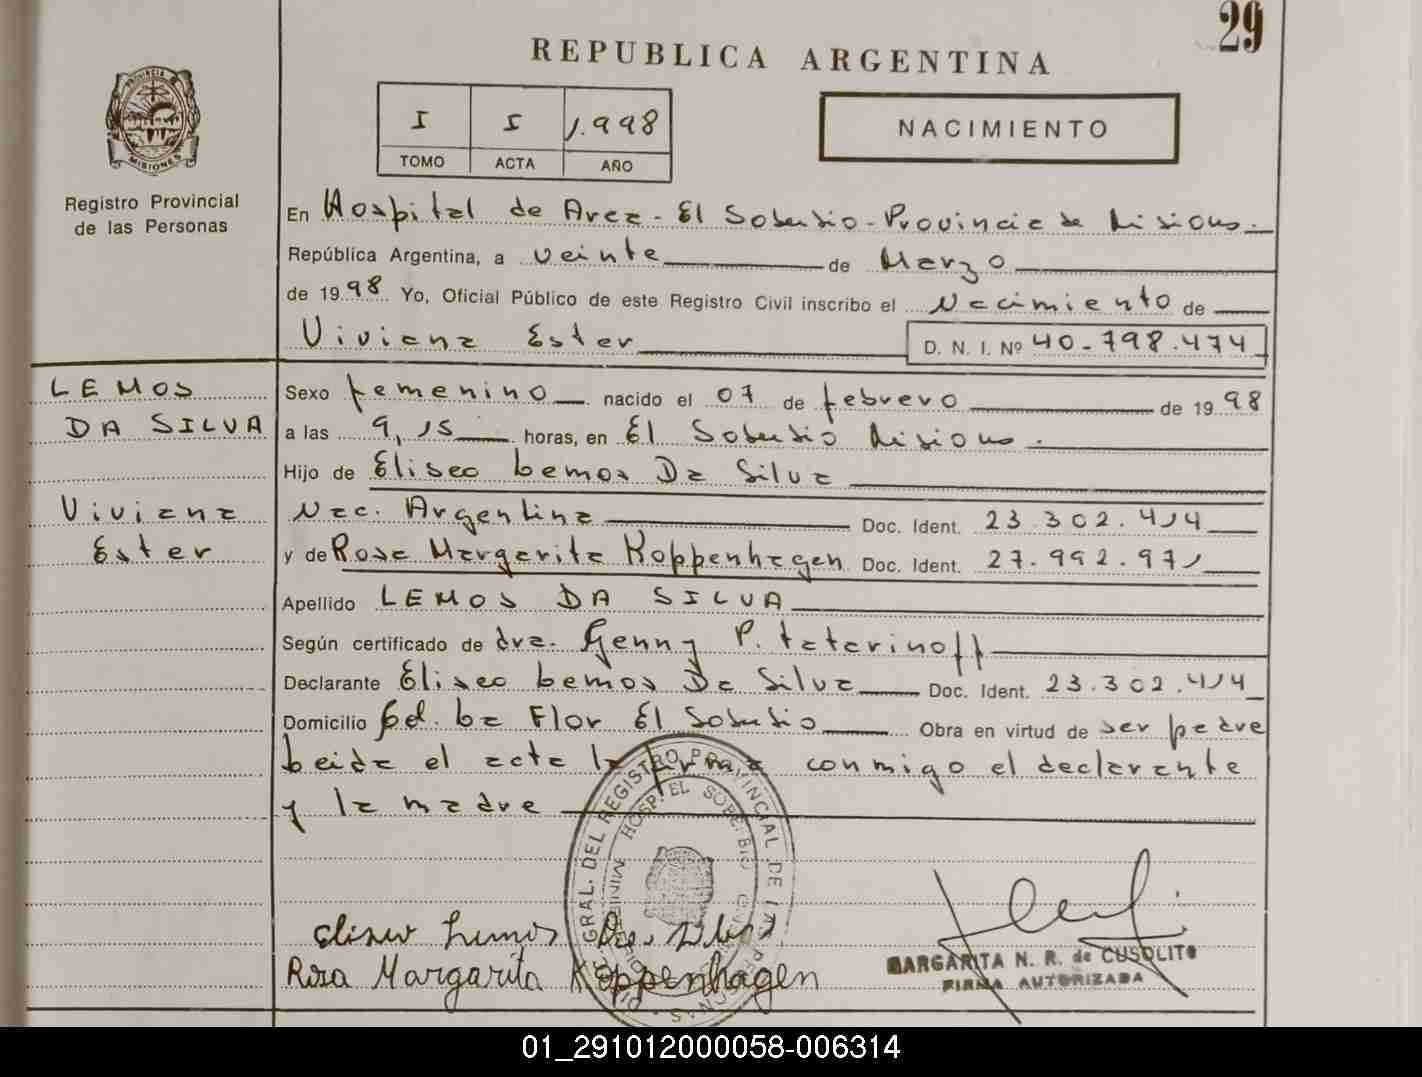 29
REPUBLICA ARGENTINA
I I 1.998
TOMO ACTA AÑO
NACIMIENTO
PROVINCIA DE
MISIONES
Registro Provincial
de las Personas
En Hospital de Area - El Soberbio - Provincia de Misiones.
República Argentina, a veinte de Marzo
de 1998 Yo, Oficial Público de este Registro Civil inscribo el Nacimiento de
Viviana Ester D. N. I. Nº 40-798.474
LEMOS
DA SILVA
Viviana
Ester
Sexo femenino nacido el 07 de febrero de 1998
a las 9,15 horas, en El Soberbio Misiones.
Hijo de Eliseo Lemos Da Silva
Nac. Argentina Doc. Ident. 23.302.414
y de Rosa Margarita Koppenhagen Doc. Ident. 27.992.971
Apellido LEMOS DA SILVA
Según certificado de dra. Genny P. tatarinoff
Declarante Eliseo Lemos Da Silva Doc. Ident. 23.302.414
Domicilio Cd. La Flor El Soberbio Obra en virtud de ser padre
Leida el acta la firma conmigo el declarante
y la madre
GRAL. DEL REGISTRO PROVINCIAL DE LAS
HOSP. EL SOBERBIO
Eliseo Lemos Da Silva
Rosa Margarita Koppenhagen
MARGARITA N. R. de CUSOLITO
FIRMA AUTORIZADA
01_291012000058-006314